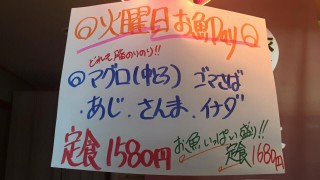 火曜日お魚Day
どれも脂のりのり!!
マグロ(中とろ) ゴマさば
・あじ・さんま・イナダ
定食1580円
お魚いっぱい盛り!!
定食1680円